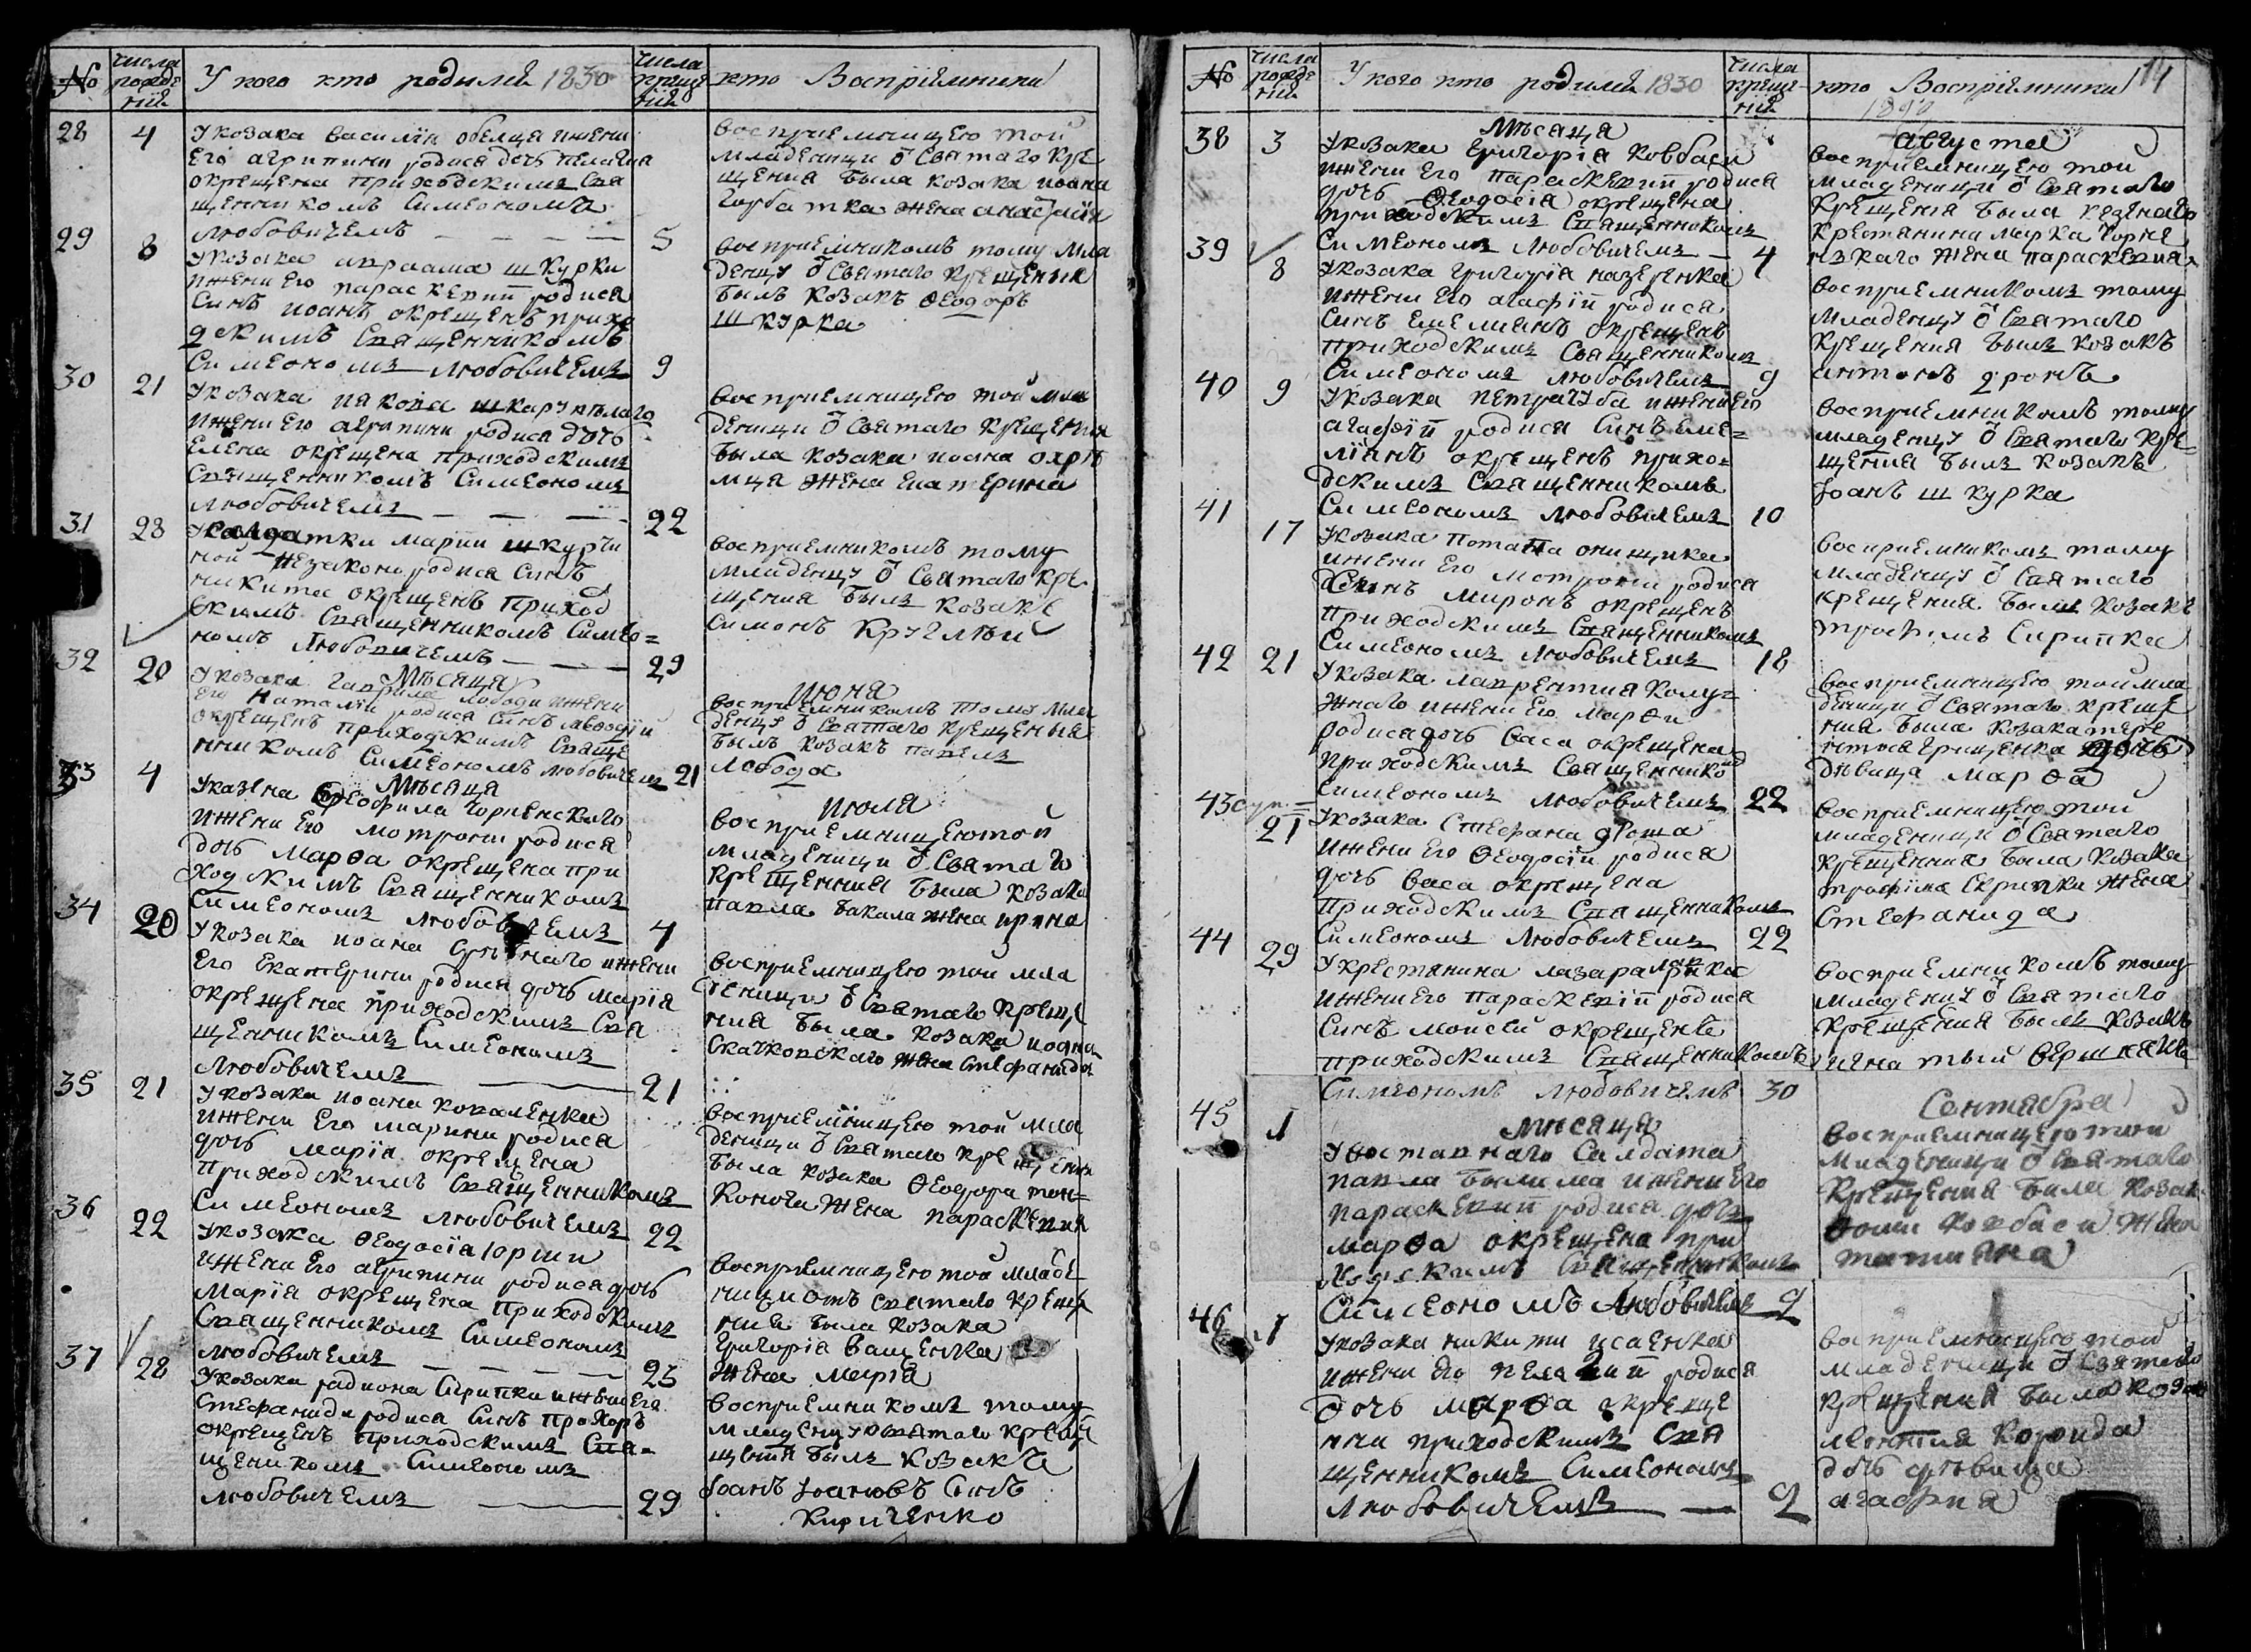 No
числа рожде ний
У кого кто родился 1830
числа креще ний
кто Воспріемники
28 4 У козака василія обелца и жени
его агрипини родися дочь пелагия
окрещена приходскимъ Свя
щенникомъ Симеономъ
Любовичемъ 5
воспріемницею той
младеници ѿ Святаго Кре
щения была козака иоана
горбатка жена анастасия
29 8 У козака авраама шкурки
и жени его параскевии родися
Синъ иоанъ окрещенъ прихо
дскимъ Священникомъ
Симеономъ Любовичемъ 9
воспріемникомъ тому мла
денцу ѿ Святаго Крещения
былъ козакъ Ѳеодоръ
шкурка
30 21 У козака иякова
и жени его агрипини родися дочь
Елена окрещена приходскимъ
Священникомъ Симеономъ
Любовичемъ 22
воспріемницею той мла
деници ѿ Святаго Крещения
была козака иоана охрѣ
мця жена екатерина
31 28 У Салдатки марии шкурчи
ной незаконо родися Синъ
никита окрещенъ приход
скимъ Священникомъ Симео=
номъ Любовичемъ 29
воспріемникомъ тому
младенцу ѿ Святаго Кре
щения былъ козакъ
Симонъ Круглѣй
Мѣсяца Июня
32 20 У козака гаврила лободи и жени
его наталии родися Синъ меѳодій
окрещенъ приходскимъ Свяще
нникомъ Симеономъ Любовичемъ 21
воспріемникомъ тому мла
денцу ѿ Святаго Крещения
былъ козакъ павелъ
лобода
Мѣсяца Июля
33 4 У казена Ѳеофила Чорненского
и жени его мотрони родися
дочь марѳа окрещена при
ходскимъ Священникомъ
Симеономъ Любовичемъ 4
воспріемницею той
младеници ѿ Святаго
Крещенния была козака
павла бакала жена ирина
34 20 У козака иоана и жени
его Екатерини родися дочь марія
окрещена приходскимъ Свя
щенникомъ Симеономъ
Любовичемъ 21
воспріемницею той мла
деници ѿ Святаго Креще
ния была козака иоана
Скачковскаго жена Стефанида
35 21 У козака иоана коваленка
и жени его марини родися
дочь марія окрещена
приходскимъ Священникомъ
Симеономъ Любовичемъ 22
воспріемницею той мла
деници ѿ Святаго Крещения
была козака Ѳеодора тон=
конога жена параскевия
36 22 У козака Ѳеодосія юрши
и жени его агрипини родися дочь
Марія окрещена приходскимъ
Священникомъ Симеономъ
Любовичемъ 23
воспріемницею той младе
ници отъ Святаго Креще
ния была козака
Григорія ващенка
жена марія
37 28 У козака радиона Скрипки и жени его
Стефаниди родися Синъ прохоръ
окрещенъ приходскимъ Свя=
щеникомъ Симеономъ
Любовичемъ 29
воспріемникомъ тому
младенцу ѿ Святаго Кре
щения былъ козакъ
Іоанъ Іоановъ Синъ
Кириченко
No
числа рожде ний
У кого кто родился 1830
числа креще ний
кто Воспріемники 14
1830
Мѣсяца августа
38 3 У козака григорія ковбаси
и жени его параскевии родися
дочь Ѳеодосія окрещена
приходскимъ Священникомъ
Симеономъ Любовичемъ 4
воспріемницею той
младеници ѿ Святаго
Крещения была казенаго
крестянина марка Чорне
нзкаго жена параскевия
39 8 У козака григорія назаренка
и жени его агафіи родися
Синъ емелиянъ окрещенъ
приходскимъ Священникомъ
Симеономъ Любовичемъ 9
воспріемникомъ тому
младенцу ѿ Святаго
Крещения былъ козакъ
антонъ дронъ
40 9 У козака петра чуба и жени его
агафіи родися Синъ еме=
ліанъ окрещенъ прихо=
дскимъ Священникомъ
Симеономъ Любовичемъ 10
воспріемникомъ тому
младенцу ѿ Святаго Кре=
щения былъ козакъ
Іоанъ шкурка
41 17 У козака потапа онищика
и жени его мотрони родися
Синъ миронъ окрещенъ
приходскимъ Священникомъ
Симеономъ Любовичемъ 18
воспріемникомъ тому
младенцу ѿ Святаго
Крещения былъ козакъ
трофимъ Скрипка
42 21 У козака лаврентия калу=
жнаго и жени его марѳи
родися дочь васа окрещена
приходскимъ Священнико
Симеономъ Любовичемъ 22
воспріемницею той мла
деници ѿ Святаго Креще
ния была козака тере
нтия грищенка дочь
дѣвица марѳа
43 21 У козака Стефана дроша
и жени его Ѳеодосіи родися
дочь васа окрещена
приходскимъ Священникомъ
Симеономъ Любовичемъ 22
воспріемницею той
младеници ѿ Святаго
Крещенния была козака
трофіма Скрипки жена
Стефанида
44 29 У крестянина лазара
и жени его параскевіи родися
Синъ мойсей окрещенъ
приходскимъ Священникомъ
Симеономъ Любовичемъ 30
воспріемникомъ тому
младенцу ѿ Святаго
Крещения былъ козакъ
игнатый вершнякъ
Мѣсяца Сентября
45 1 У вставнаго Салдата
павла былима и жени его
параскевии родися дочь
марѳа окрещена при
ходскимъ Священникомъ
Симеономъ Любовичемъ 2
воспріемницею той
младеници ѿ Святаго
Крещения была козак
фоми ковбаси жена
татияна
46 1 У козака никити исаенка
и жени его пелагии родися
дочь марѳа окреще
нна приходскимъ Свя
щенникомъ Симеономъ
Любовичемъ 2
воспріемницею той
младеници ѿ Святаго
Крещения была козак
дочь дѣвица
агафия